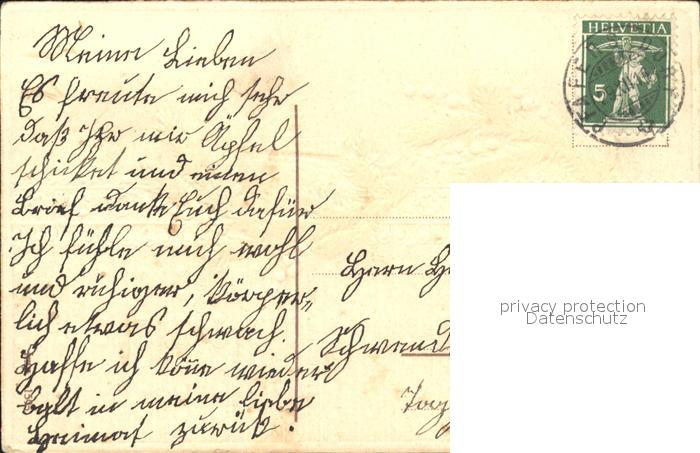 Meine Lieben
Es freute mich sehr
daß Ihr mir Äpfel
schicket und einen
Brief danke Euch dafür
Ich fühle mich wohl
und ruhiger, körper=
lich etwas schwach.
Hoffe ich könne wieder
balt in meine liebe
Heimat zurück.
HELVETIA
5
Herrn H
Schwand
privacy protection
Datenschutz